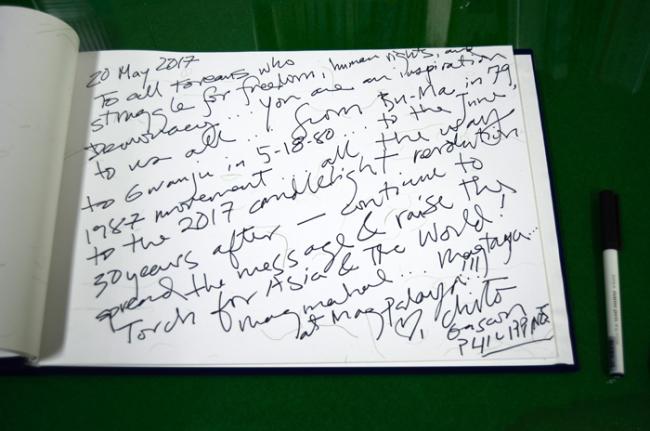 20 May 2017
To all Koreans who
struggle for freedom, human rights, and
Democracy... you are an inspiration
to us all... from Bu-Ma in '79,
to Gwanju in 5-18-80... to the June,
1987 movement... all the way
to the 2017 candlelight revolution
30 years after — continue to
spread the message & raise the
Torch for Asia & The World!
magmahal... magtaya...
at Magpalaya!!!
♡, Chito
Gascon
PHILIPPINES